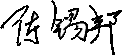 陈锡邦